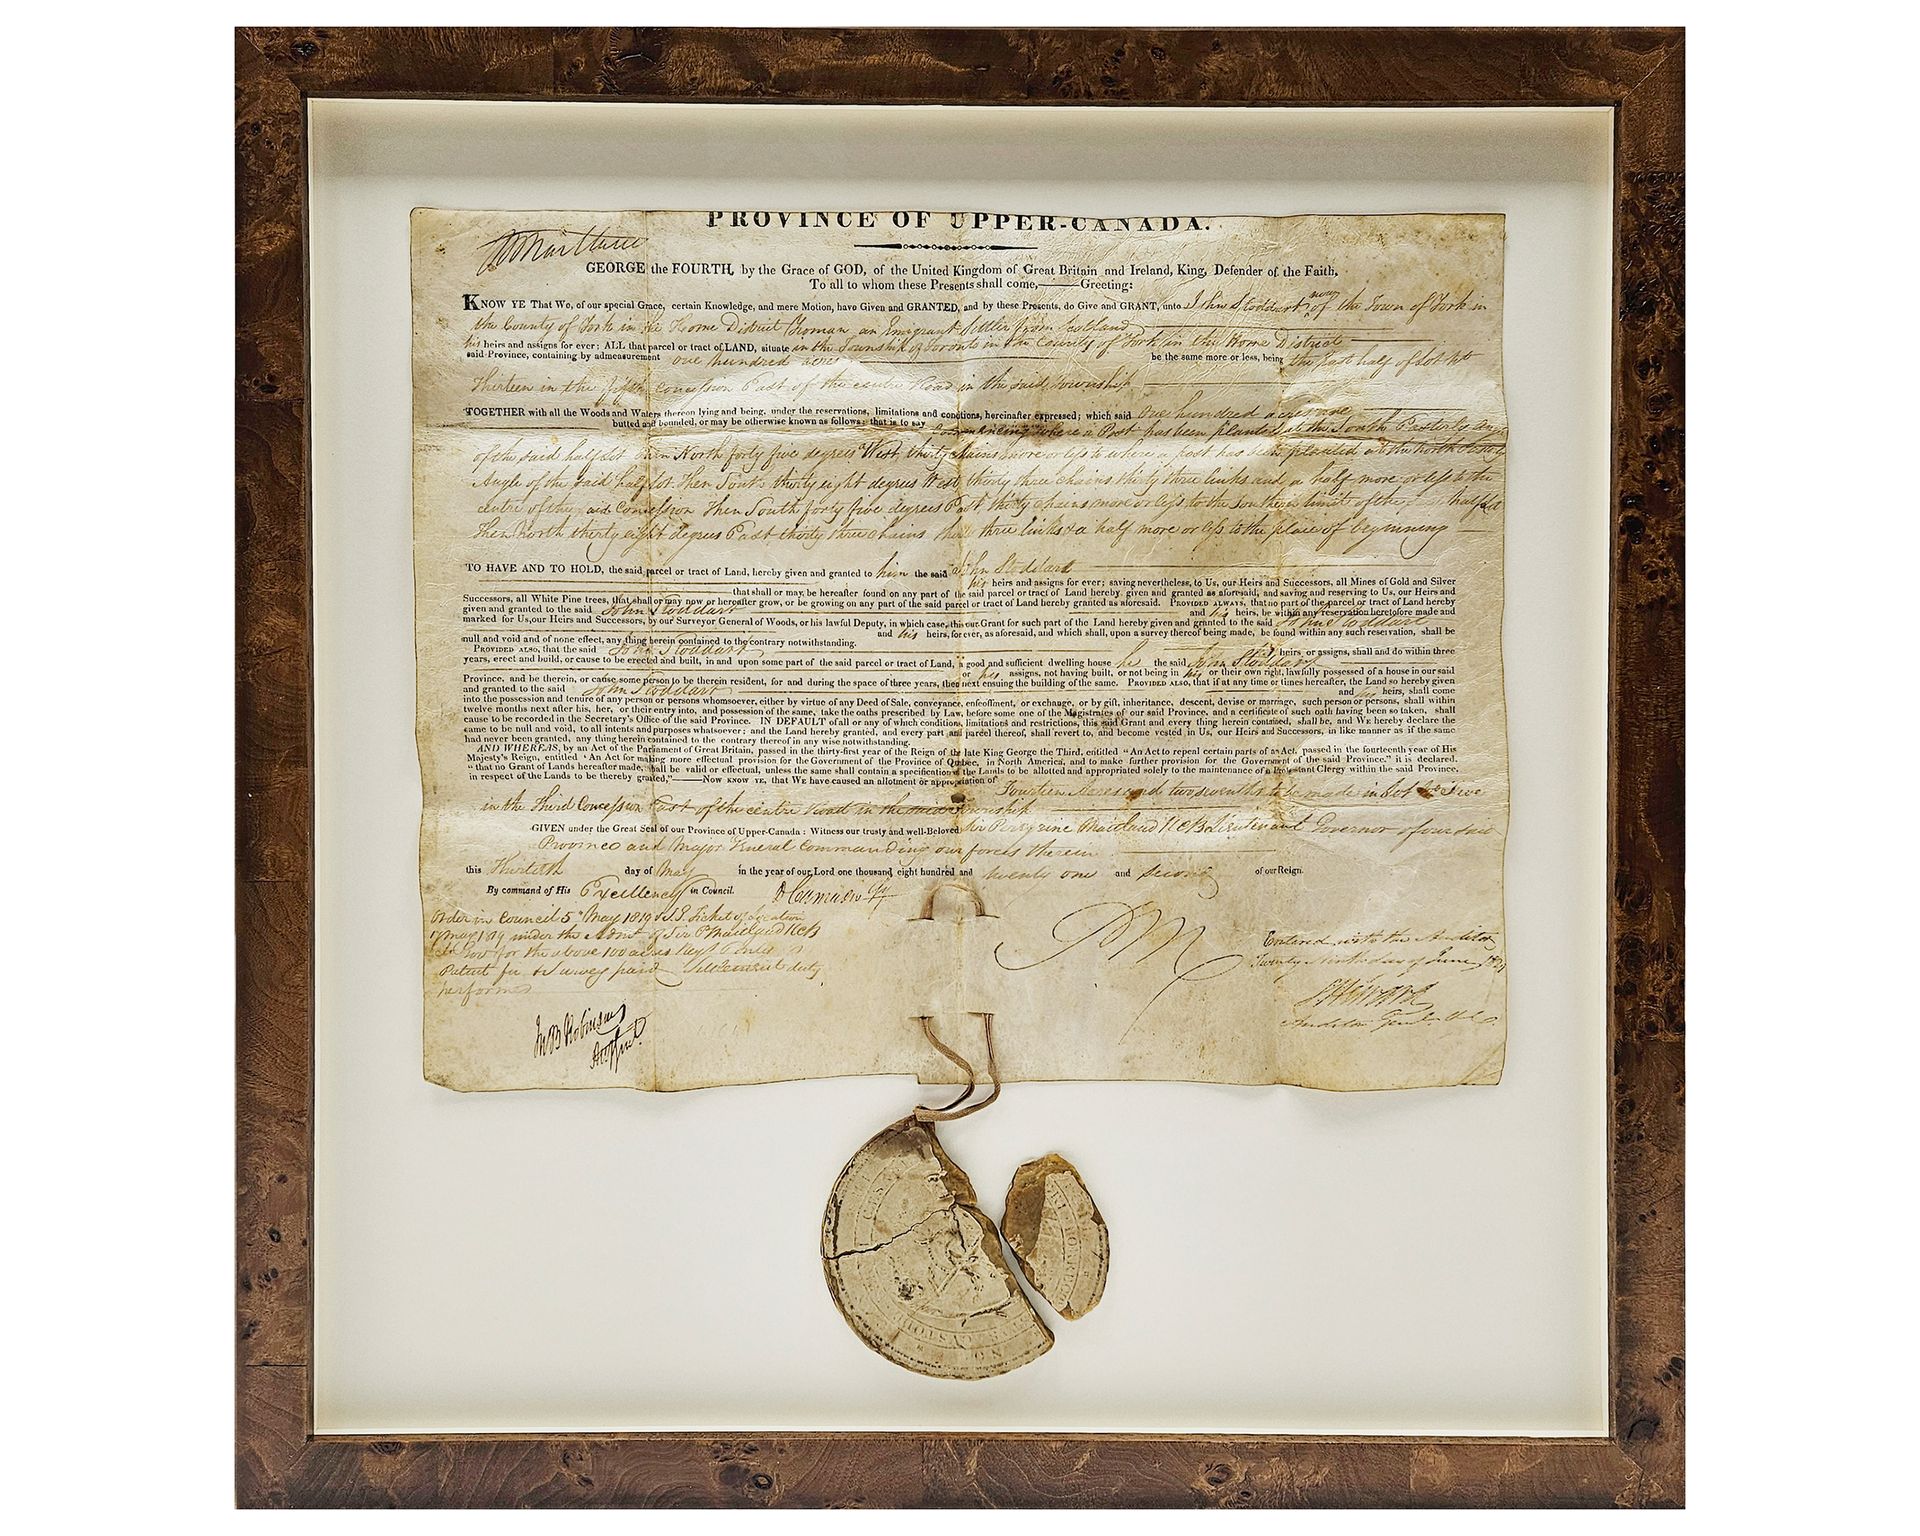 PROVINCE OF UPPER-CANADA.
P Maitland
GEORGE the FOURTH, by the Grace of GOD, of the United Kingdom of Great Britain and Ireland, King, Defender of the Faith,
To all to whom these Presents shall come,——Greeting:
KNOW YE That We, of our special Grace, certain Knowledge, and mere Motion, have Given and GRANTED, and by these Presents, do Give and GRANT, unto John Stoddart now of the Town of York in
the County of York in the Home District Yeoman an Emigrant Settler from Scotland
his heirs and assigns for ever; ALL that parcel or tract of LAND, situate in the Township of Toronto in the County of York in the Home District
said Province, containing by admeasurement one hundred acres be the same more or less, being the East half of Lot No
Thirteen in the fifth Concession East of the centre Road in the said Township
TOGETHER with all the Woods and Waters thereon lying and being, under the reservations, limitations and conditions, hereinafter expressed; which said One hundred acres are
butted and bounded, or may be otherwise known as follows: that is to say Commencing where a Post has been planted at the South Easterly Angle
of the said half Lot Then North forty five degrees West, thirty chains more or less to where a post has been planted at the North Easterly
Angle of the said half Lot Then South thirty eight degrees West, thirty three chains thirty three links and a half more or less to the
centre of the said Concession Then South forty five degrees East thirty chains more or less to the Southern limit of the said half Lot
Then North thirty eight degrees East thirty three chains thirty three links & a half more or less to the place of beginning
TO HAVE AND TO HOLD, the said parcel or tract of Land, hereby given and granted to him the said John Stoddart
his heirs and assigns for ever; saving nevertheless, to Us, our Heirs and Successors, all Mines of Gold and Silver
that shall or may, be hereafter found on any part of the said parcel or tract of Land hereby given and granted as aforesaid, and saving and reserving to Us, our Heirs and
Successors, all White Pine trees, that shall or may now or hereafter grow, or be growing on any part of the said parcel or tract of Land hereby granted as aforesaid. PROVIDED ALWAYS, that no part of the parcel or tract of Land hereby
given and granted to the said John Stoddart and his heirs, be within any reservation heretofore made and
marked for Us, our Heirs and Successors, by our Surveyor General of Woods, or his lawful Deputy, in which case, this our Grant for such part of the Land hereby given and granted to the said John Stoddart
and his heirs, forever, as aforesaid, and which shall, upon a survey thereof being made, be found within any such reservation, shall be
null and void and of none effect, any thing herein contained to the contrary notwithstanding.
PROVIDED ALSO, that the said John Stoddart his heirs, or assigns, shall and do within three
years, erect and build, or cause to be erected and built, in and upon some part of the said parcel or tract of Land, a good and sufficient dwelling house he the said John Stoddart
or his assigns, not having built, or not being in his or their own right, lawfully possessed of a house in our said
Province, and be therein, or cause some person to be therein resident, for and during the space of three years, then next ensuing the building of the same. PROVIDED ALSO, that if at any time or times hereafter, the Land so hereby given
and granted to the said John Stoddart and his heirs, shall come
into the possession and tenure of any person or persons whomsoever, either by virtue of any Deed of Sale, conveyance, enfeoffment, or exchange, or by gift, inheritance, descent, devise or marriage, such person or persons, shall within
twelve months next after his, her, or their entry into, and possession of the same, take the oaths prescribed by Law, before some one of the Magistrates of our said Province, and a certificate of such oath having been so taken, shall
cause to be recorded in the Secretary's Office of the said Province. IN DEFAULT of all or any of which conditions, limitations and restrictions, this said Grant and every thing herein contained, shall be, and We hereby declare the
same to be null and void, to all intents and purposes whatsoever; and the Land hereby granted, and every part and parcel thereof, shall revert to, and become vested in Us, our Heirs and Successors, in like manner as if the same
had never been granted, any thing herein contained to the contrary thereof in any wise notwithstanding.
AND WHEREAS, by an Act of the Parliament of Great Britain, passed in the thirty-first year of the Reign of the late King George the Third, entitled "An Act to repeal certain parts of an Act, passed in the fourteenth year of His
Majesty's Reign, entitled 'An Act for making more effectual provision for the Government of the Province of Quebec, in North America, and to make further provision for the Government of the said Province." it is declared.
"that no Grant of Lands hereafter made, shall be valid or effectual, unless the same shall contain a specification of the Lands to be allotted and appropriated solely to the maintenance of a Protestant Clergy within the said Province,
in respect of the Lands to be thereby granted,"——NOW KNOW YE, that We have caused an allotment or appropriation of Fourteen Acres and two sevenths to be made in Lot No Five
in the Third Concession East of the centre Road in the said Township
GIVEN under the Great Seal of our Province of Upper-Canada: Witness our trusty and well-Beloved Sir Peregrine Maitland KCB Lieutenant Governor of our said
Province and Major General Commanding our forces therein
this Thirtieth day of May in the year of our Lord one thousand, eight hundred and twenty one and Second of our Reign.
By command of His Excellency in Council. D Cameron Sy
Order in Council 5th May 1819 Ticket of Location
17 May 1819 under the Admn of Sir P Maitland KCB
for the above 100 acres
Patent fee & Survey paid Settlement duty
performed
PM
Entered with the Auditor
Twenty Ninth day of June 1821
S Heward
Auditor Genl U C
Jn B Robinson
Atty Genl